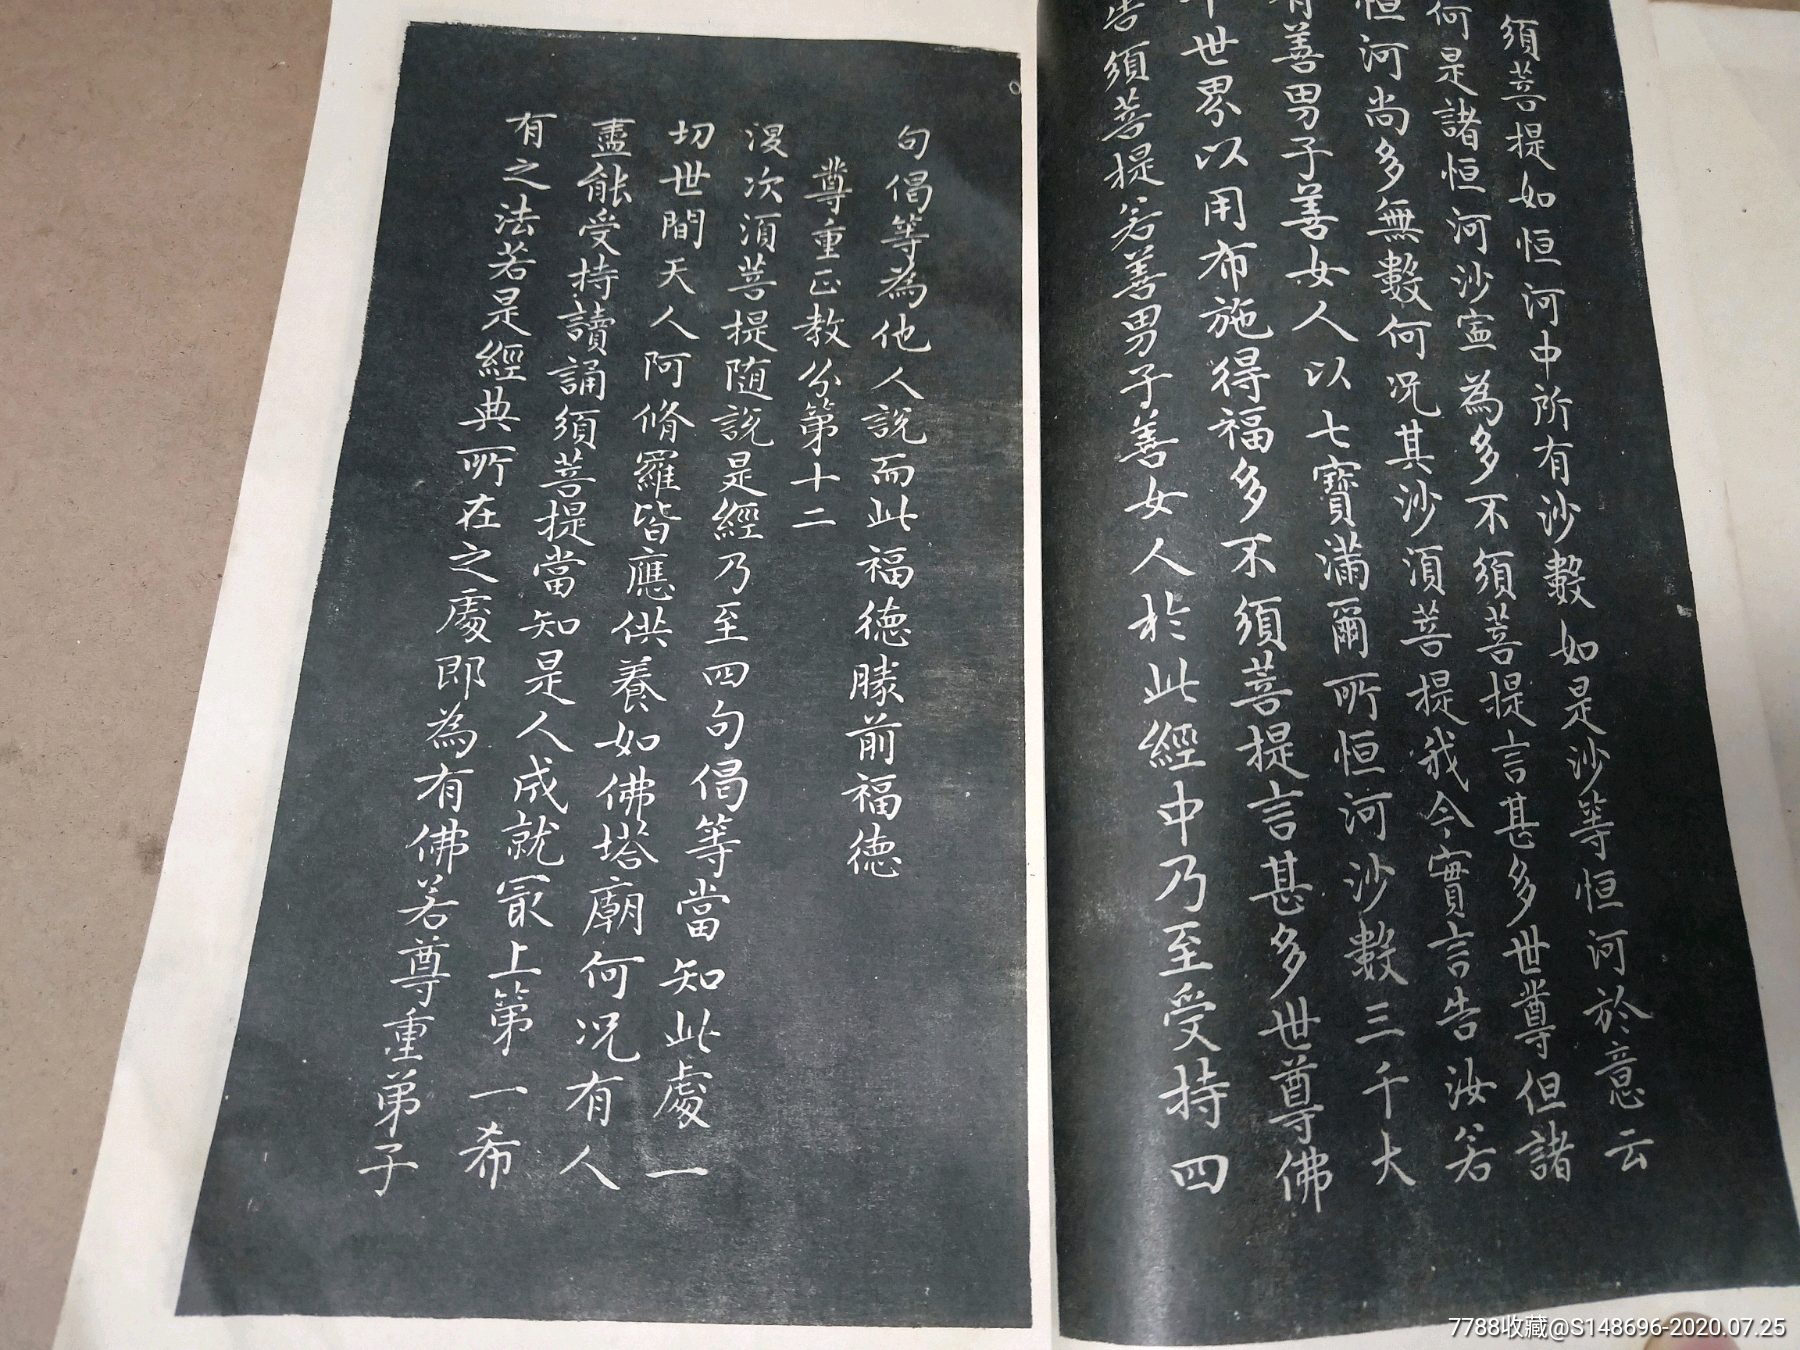 須菩提如恒河中所有沙數如是沙等恒河於意云
何是諸恒河沙寍為多不須菩提言甚多世尊但諸
恒河尚多無數何况其沙須菩提我今實言告汝若
有善男子善女人以七寶滿爾所恒河沙數三千大
千世界以用布施得福多不須菩提言甚多世尊佛
告須菩提若善男子善女人於此經中乃至受持四
句偈等為他人說而此福德勝前福德
尊重正教分第十二
復次須菩提随說是經乃至四句偈等當知此處一
切世間天人阿脩羅皆應供養如佛塔廟何况有人
盡能受持讀誦須菩提當知是人成就冣上第一希
有之法若是經典所在之處即為有佛若尊重弟子
7788收藏@S148696-2020.07.25